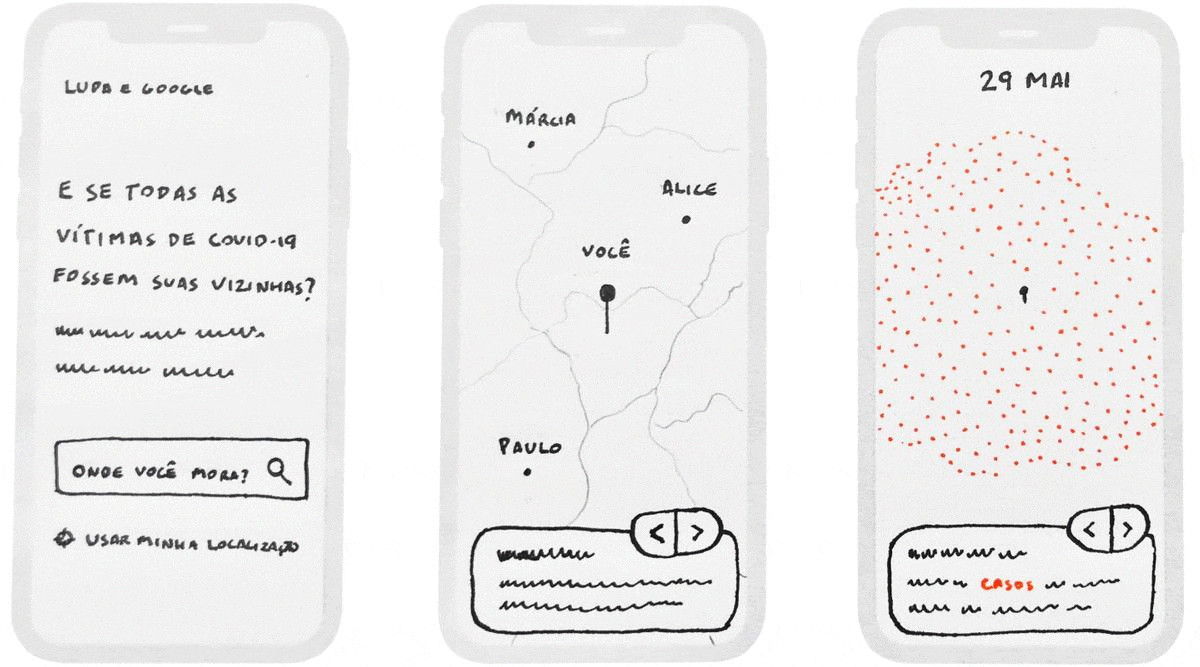 LUPA E GOOGLE
E SE TODAS AS
VÍTIMAS DE COVID-19
FOSSEM SUAS VIZINHAS?
ONDE VOCÊ MORA?
USAR MINHA LOCALIZAÇÃO
MÁRCIA
ALICE
VOCÊ
PAULO
< >
29 MAI
< >
CASOS